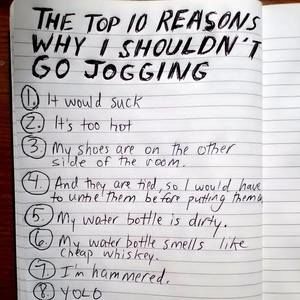 THE TOP 10 REASONS
WHY I SHOULDN'T
GO JOGGING
1. It would suck
2. It's too hot
3. My shoes are on the other
side of the room.
4. And they are tied, so I would have
to untie them before putting them
5. My water bottle is dirty.
6. My water bottle smells like
cheap whiskey.
7. I'm hammered.
8. YOLO